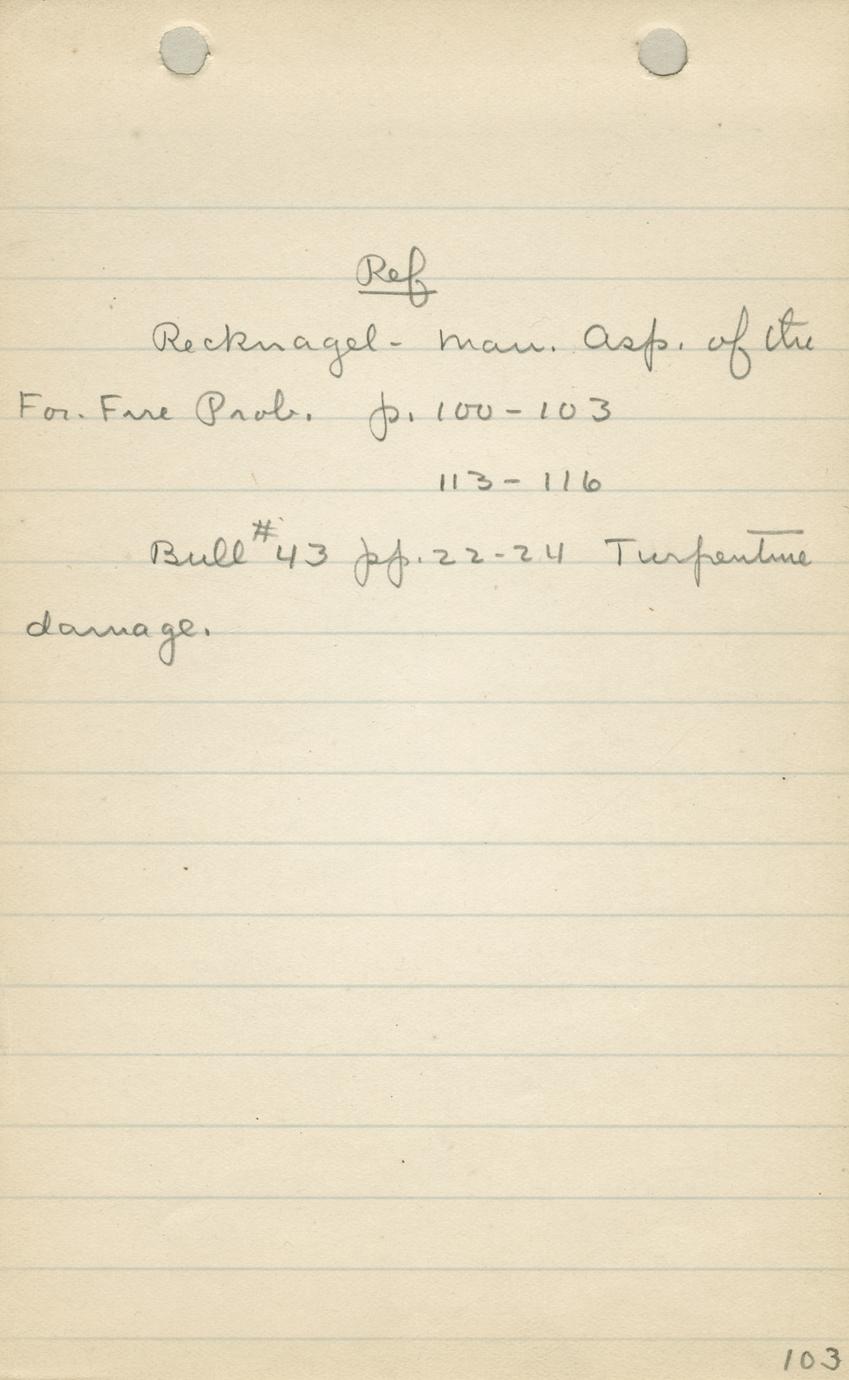 Ref
Recknagel - Man. Asp. of the
For. Fire Prob. p. 100-103
113-116
Bull #43 pp. 22-24 Turpentine
damage.
103